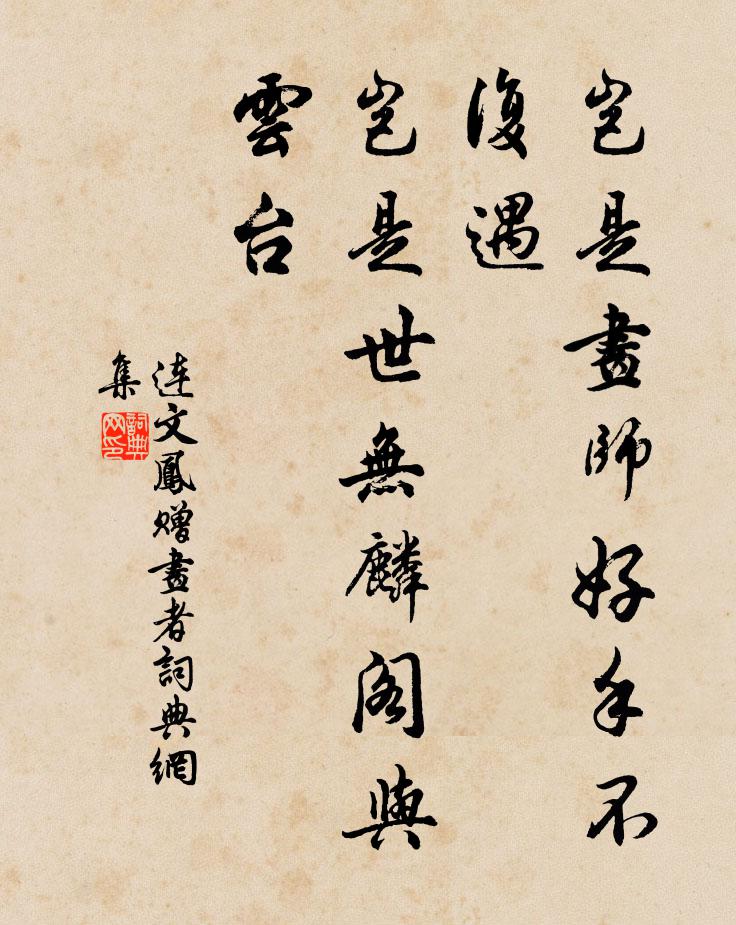 豈是畫師好手不
復遇
豈是世無麟阁與
雲台
连文鳳赠畫者詞典網
集
詞典
网印